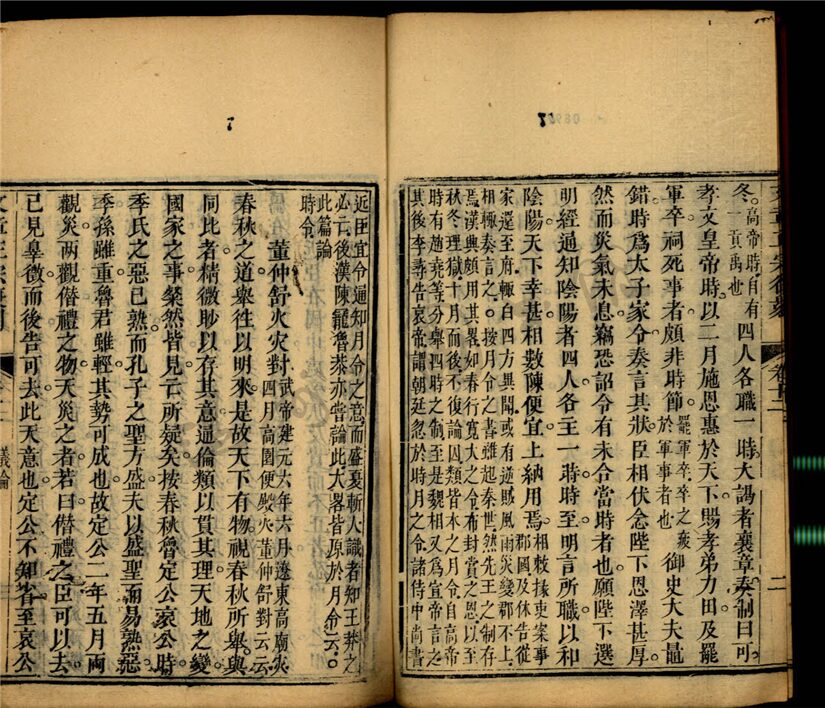 7
17
冬高帝時自有
一貢禹也四人各職一時大謁者襄章奏制曰可
孝文皇帝時以二月施恩惠於天下賜孝弟力田及罷
軍卒祠死事者頗非時節罷軍卒卒之疲
於軍事者也御史大夫鼂
錯時爲太子家令奏言其狀臣相伏念陛下恩澤甚厚
然而災氣未息竊恐詔令有未合當時者也願陛下選
明經通知陰陽者四人各主一時時至明言所職以和
陰陽天下幸甚相數陳便宜上納用焉相敕掾吏案事
郡國及休告從
家還至府輙白四方異聞或有逆賊風雨災變郡不上
相輙奏言之○按月令之書雖起秦世然先王之制存
焉漢興頗用其畧如春行寬大之令布封賞之恩以至
秋冬理獄十月而後不復論囚類皆本之月令自高帝
時有趙堯等分舉四時之制至是魏相又爲宣帝言之
其後李尋告哀帝謂朝廷忽於時月之令諸侍中尚書
二
近臣宜令通知月令之意而盛夏斬人識者知王莽之
必亡後漢陳寵魯恭亦嘗論此大畧皆原於月令云○
此篇論
時令
董仲舒火災對武帝建元六年六月遼東高廟災
四月高園便殿火董仲舒對云云
春秋之道舉往以明來是故天下有物視春秋所舉與
同比者精微眇以存其意通倫類以貫其理天地之變
國家之事粲然皆見亡所疑矣按春秋魯定公哀公時
季氏之惡已熟而孔子之聖方盛夫以盛聖而易熟惡
季孫雖重魯君雖輕其勢可成也故定公二年五月兩
觀災兩觀僭禮之物天災之者若曰僭禮之臣可以去
已見辠徵而後告可去此天意也定公不知省至哀公
議論